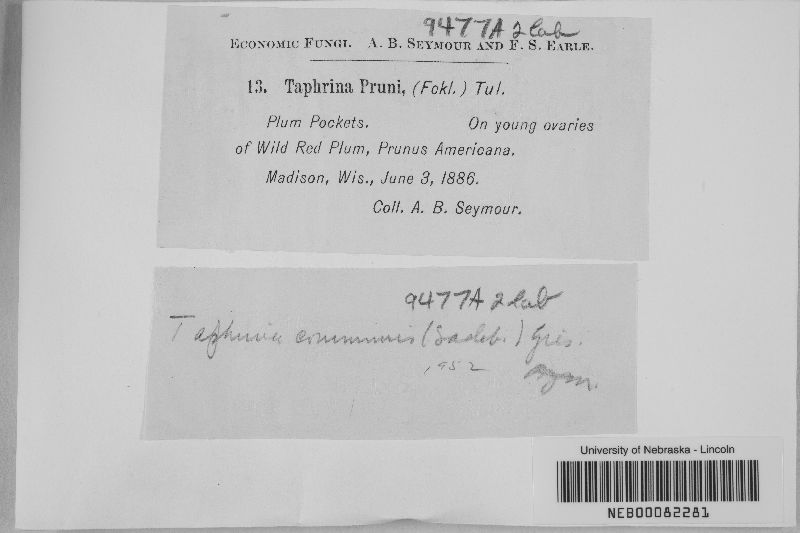 9477A 2 lab
ECONOMIC FUNGI. A. B. SEYMOUR AND F. S. EARLE.
13. Taphrina Pruni, (Fckl.) Tul.
Plum Pockets. On young ovaries
of Wild Red Plum, Prunus Americana.
Madison, Wis., June 3, 1886.
Coll. A. B. Seymour.
9477A 2 lab
Taphrina communis (Sadeb.) Gies.
1952
University of Nebraska - Lincoln
NEB00082281